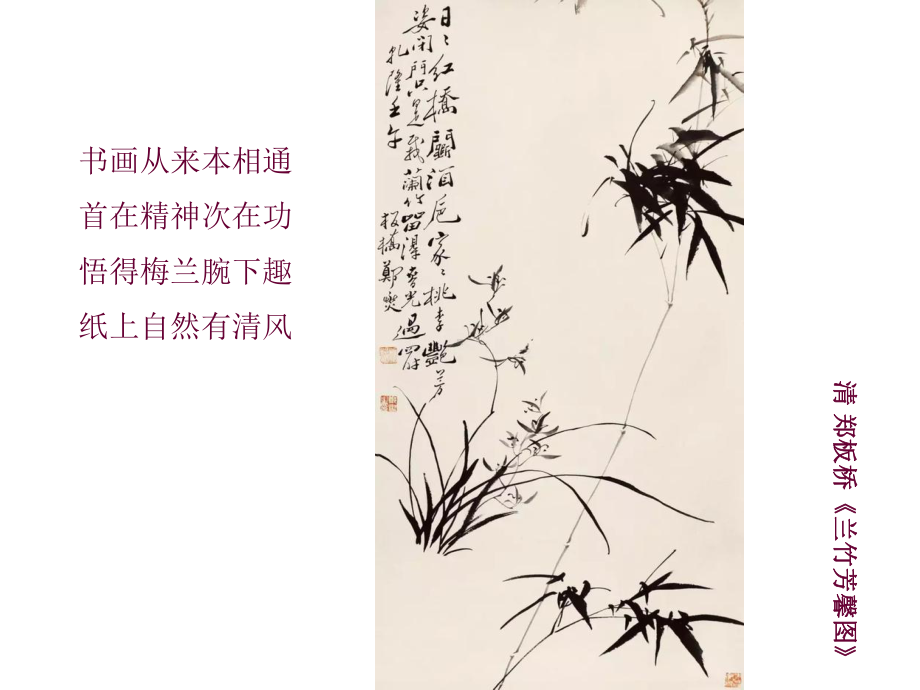 书画从来本相通
首在精神次在功
悟得梅兰腕下趣
纸上自然有清风
日〻紅橋鬪酒卮家〻桃李艷芳
姿閉門只是栽蘭竹留得春光過四时
乾隆壬午
板橋鄭燮
清 郑板桥《兰竹芳馨图》